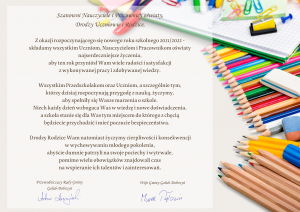 Szanowni Nauczyciele i Pracownicy oświaty,
Drodzy Uczniowie i Rodzice,
Z okazji rozpoczynającego się nowego roku szkolnego 2021/2022 -
składamy wszystkim Uczniom, Nauczycielom i Pracownikom oświaty
najserdeczniejsze życzenia,
aby ten rok przyniósł Wam wiele radości i satysfakcji
z wykonywanej pracy i zdobywanej wiedzy.
Wszystkim Przedszkolakom oraz Uczniom, a szczególnie tym,
którzy dzisiaj rozpoczynają przygodę z nauką, życzymy,
aby spełniły się Wasze marzenia o szkole.
Niech każdy dzień wzbogaca Was w wiedzę i nowe doświadczenia,
a szkoła stanie się dla Was tym miejscem do którego z chęcią
będziecie przychodzić i mieć poczucie bezpieczeństwa.
Drodzy Rodzice Wam natomiast życzymy cierpliwości i konsekwencji
w wychowywaniu młodego pokolenia,
abyście dumnie patrzyli na swoje pociechy i wytrwale,
pomimo wielu obowiązków znajdowali czas
na wspieranie ich talentów i zainteresowań.
Przewodniczący Rady Gminy
Wójt Gminy